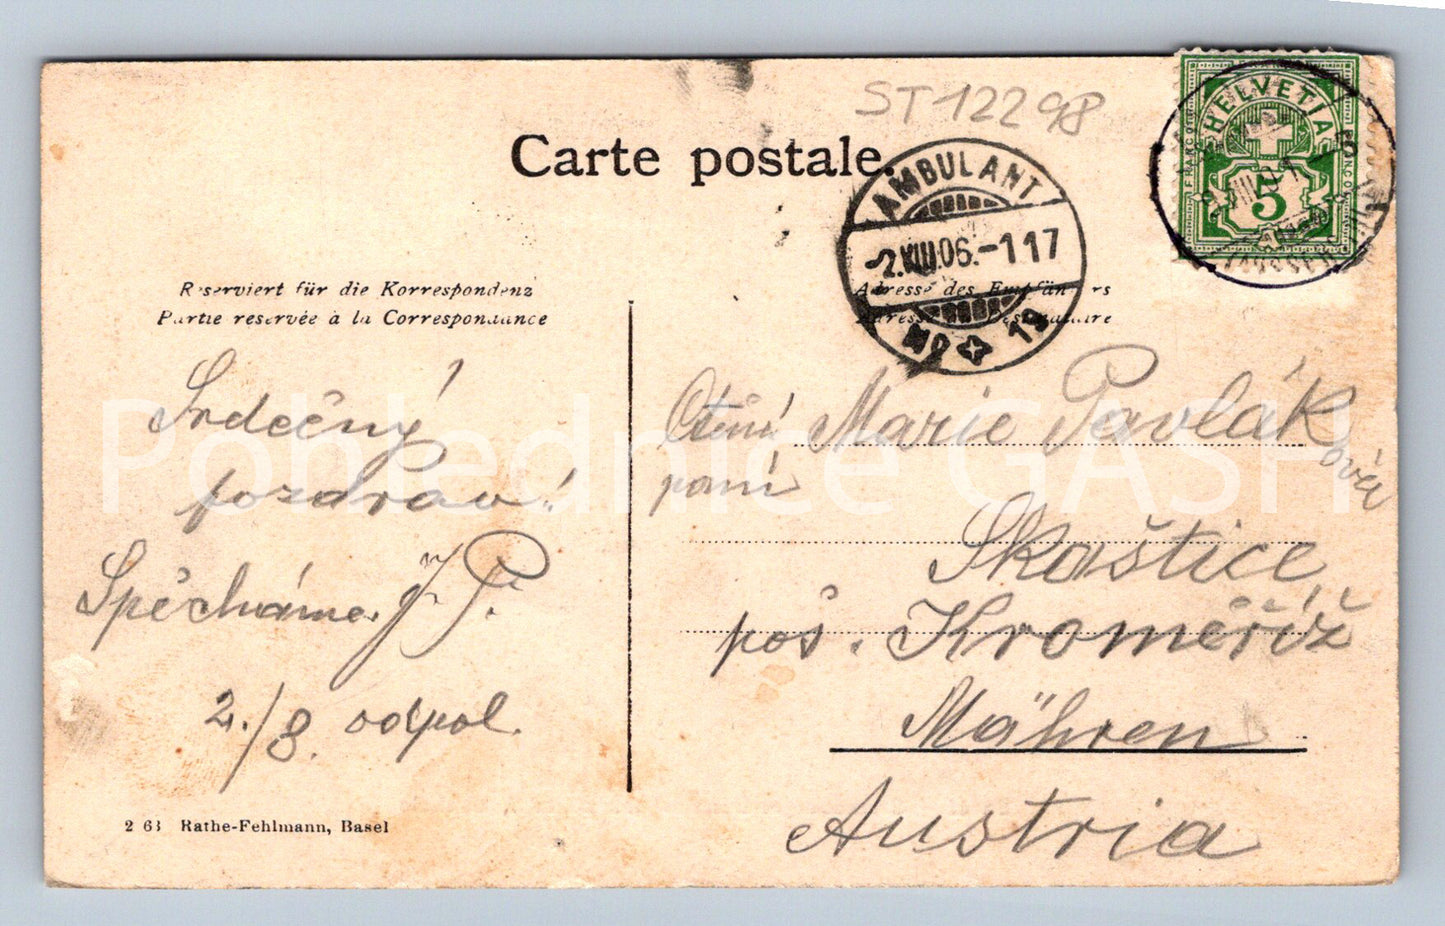 ST12298
Carte postale.
AMBULANT
-2.VIII.06.-117
No 19
HELVETIA
5
Reserviert für die Korrespondenz
Partie reservée à la Correspondance
Adresse des Empfängers
Adresse Destinataire
Srdečný
pozdrav!
Spěcháme. J. P.
2./8. odpol.
Ctění Marie Pavlák
ová
paní
Skaštice
pos. Kroměříž
Mähren
Austria
2 63 Rathe-Fehlmann, Basel
Pohlednice GASH